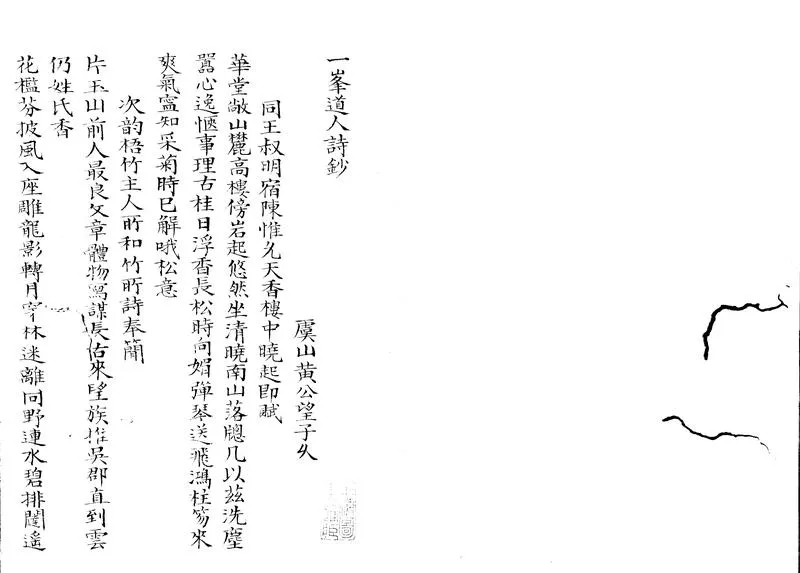 一峯道人詩鈔
虞山黃公望子久
同王叔明宿陳惟允天香樓中曉起即賦
華堂敞山麓高樓傍岩起悠然坐清曉南山落牕几以茲洗塵
囂心逸愜事理古桂日浮香長松時向媚彈琴送飛鴻柱笏來
爽氣寧知采菊時已解哦松意
次韵梧竹主人所和竹所詩奉簡
片玉山前人最良文章體物寫謀長佑來望族推吳郡直到雲
仍姓氏香
花檻芬披風入座雕龍影轉月穿林迷離向野連水碧排闥遙